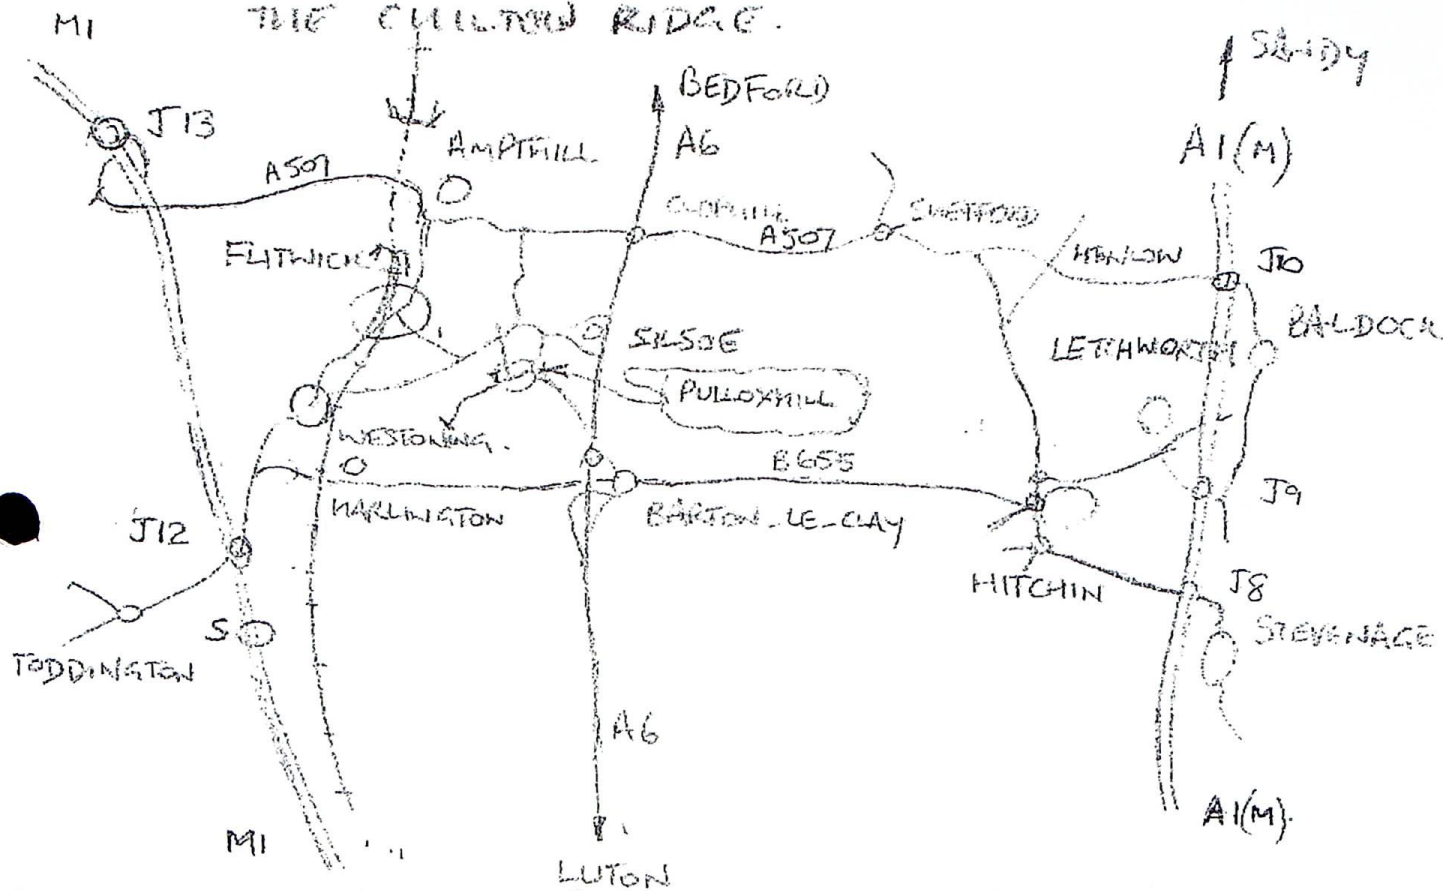 M1
THE CHILTERN RIDGE.
SANDY
BEDFORD
J13
A6
A1(M)
AMPTHILL
A507
CLOPHILL
SHEFFORD
A507
FLITWICK
HENLOW
J10
BALDOCK
SILSOE
LETCHWORTH
PULLOXHILL
WESTONING.
B655
J9
HARLINGTON
BARTON-LE-CLAY
J12
HITCHIN
J8
S
STEVENAGE
TODDINGTON
A6
A1(M).
M1
LUTON